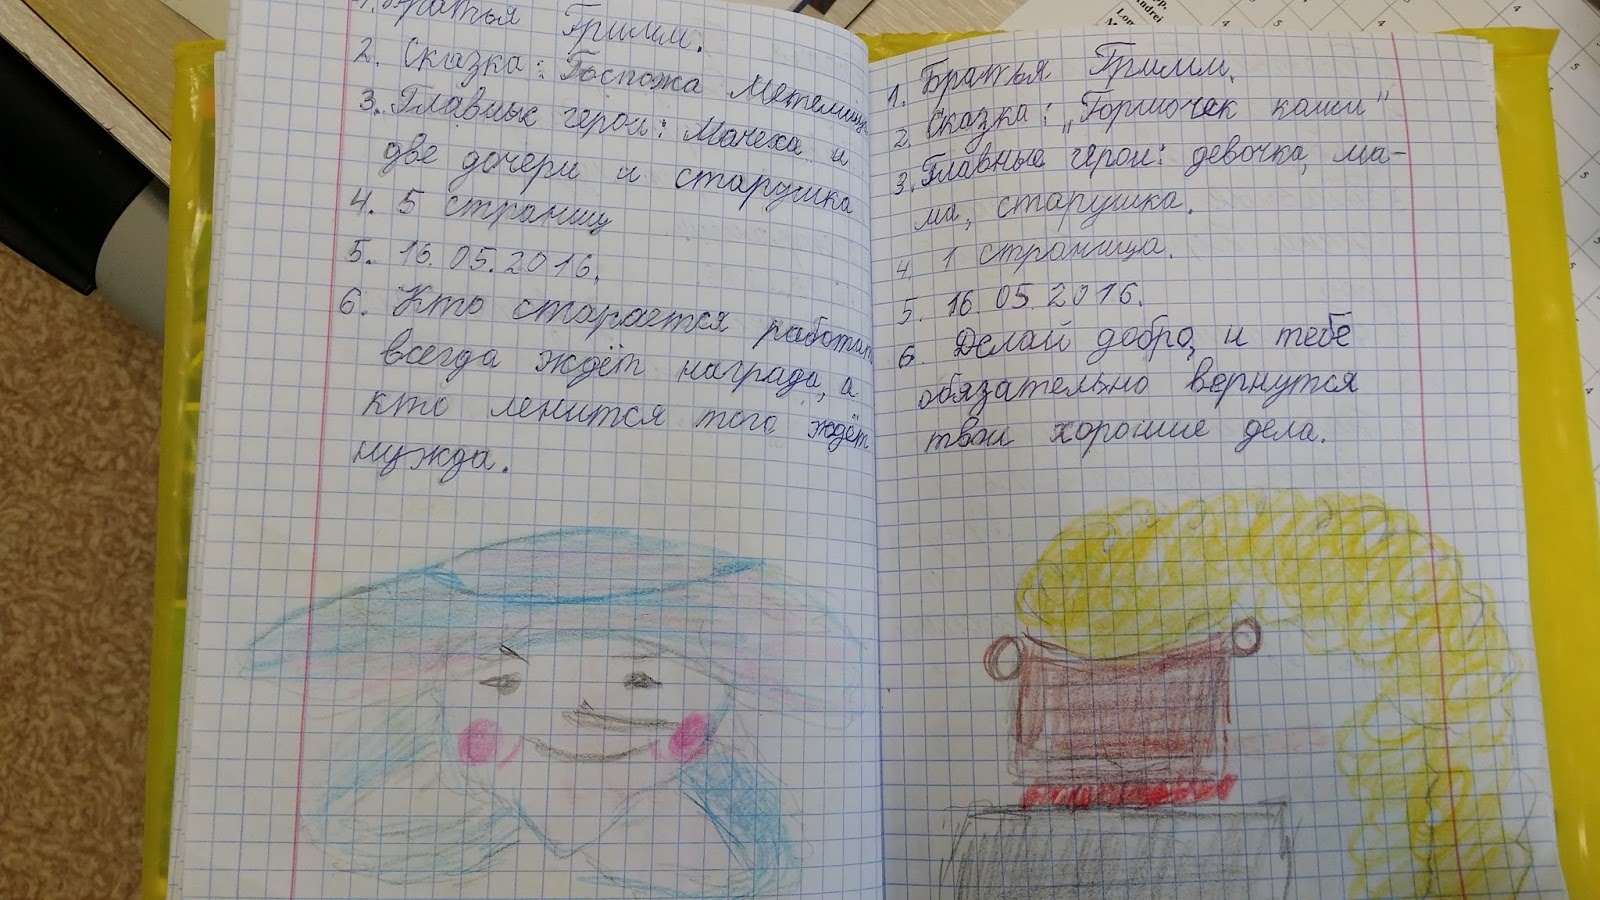 1. Братья Гримм.
2. Сказка: Госпожа Метелица
3. Главных герои: Мачеха и
две дочери и старушка
4. 5 страниц
5. 16.05.2016.
6. Кто старается работать
всегда ждёт награда, а
кто ленится того ждёт
нужда.
1. Братья Гримм.
2. Сказка: „Горшочек каши"
3. Главные герои: девочка, ма-
ма, старушка.
4. 1 страница.
5. 16.05.2016.
6. Делай добро, и тебе
обязательно вернутся
твои хорошие дела.
Andrei